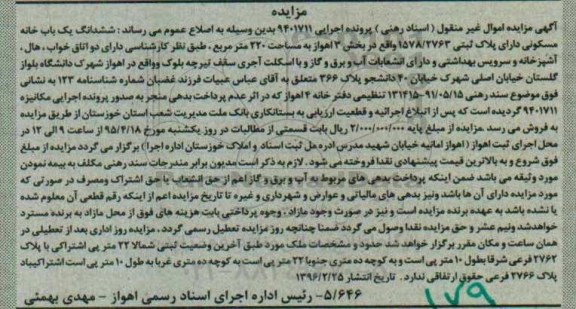 مزایده
آگهی مزایده اموال غیر منقول ( اسناد رهنی ) پرونده اجرایی ۹۴۰۱۷۱۱ بدین وسیله به اصلاع عموم می رساند : ششدانگ یک باب خانه
مسکونی دارای پلاک ثبتی ۱۵۷۸/۲۷۶۳ واقع در بخش ۳ اهواز به مساحت ۲۲۰ متر مربع ، طبق نظر کارشناسی دارای دو اتاق خواب ، هال ،
آشپزخانه و سرویس بهداشتی و دارای انشعابات آب و برق و گاز و با اسکلت آجری سقف تیرچه بلوک وواقع در اهواز شهرک دانشگاه بلوار
گلستان خیابان اصلی شهرک خیابان ۴۰ دانشجو پلاک ۳۶۶ متعلق به آقای عباس عبیات فرزند غضبان شماره شناسنامه ۱۲۳ به نشانی
فوق موضوع سند رهنی ۹۱/۰۵/۱۵–۱۳۱۴۱۵ تنظیمی دفتر خانه ۴ اهواز که در اثر عدم پرداخت بدهی منجر به صدور پرونده اجرایی مکانیزه
۹۴۰۱۷۱۱ گردیده است که پس از ابلاغ اجرائیه و قطعیت ارزیابی به بستانکاری بانک ملت مدیریت شعب استان خوزستان از طریق مزایده
به فروش می رسد .مزایده از مبلغ پایه ۲/۰۰۰/۰۰۰/۰۰۰ ریال بابت قسمتی از مطالبات در روز یکشنبه مورخ ۹۵/۴/۱۸ از ساعت ۹ الی ۱۲ در
محل اجرای ثبت اهواز ( اهواز امانیه خیابان شهید مدرس اداره کل ثبت اسناد و املاک خوزستان اداره اجرا ) برگزار می گردد مزایده از مبلغ
فوق شروع و به بالاترین قیمت پیشنهادی نقدا فروخته می شود . لازم به ذکر است مدیون برابر مندرجات سند رهنی مکلف به بیمه نمودن
مورد وثیقه می باشد ضمن اینکه پرداخت بدهی های مربوط به آب و برق و گاز اعم از حق انشعاب یا حق اشتراک ومصرف در صورتی که
مورد مزایده دارای آن ها باشد ونیز بدهی های مالیاتی و عوارض و شهرداری و غیره تا تاریخ مزایده اعم از اینکه رقم قطعی آن معلوم شده
یا نشده باشد به عهده برنده مزایده است و نیز در صورت وجود مازاد ، وجوه پرداختی بابت هزینه های فوق از محل مازاد به برنده مسترد
خواهدشد ونیم عشر و حق مزایده نقدا وصول می گردد ضمنا چنانچه روز مزایده تعطیل رسمی گردد ، مزایده روز اداری بعد از تعطیلی در
همان ساعت و مکان مقرر برگزار خواهد شد حدود و مشخصات ملک مورد طبق آخرین وضعیت ثبتی شمالا ۲۲ متر پی اشتراکی با پلاک
۲۷۶۲ فرعی شرقا بطول ۱۰ متر پی است و به کوچه ده متری جنوبا ۲۲ متر پی است به کوچه ده متری غربا به طول ۱۰ متر پی است اشتراکیباد
پلاک ۲۷۶۶ فرعی حقوق ارتفاقی ندارد . تاریخ انتشار ۱۳۹۶/۲/۲۵
۵/۶۴۶– رئیس اداره اجرای اسناد رسمی اهواز – مهدی بهمئی
۱۷۹